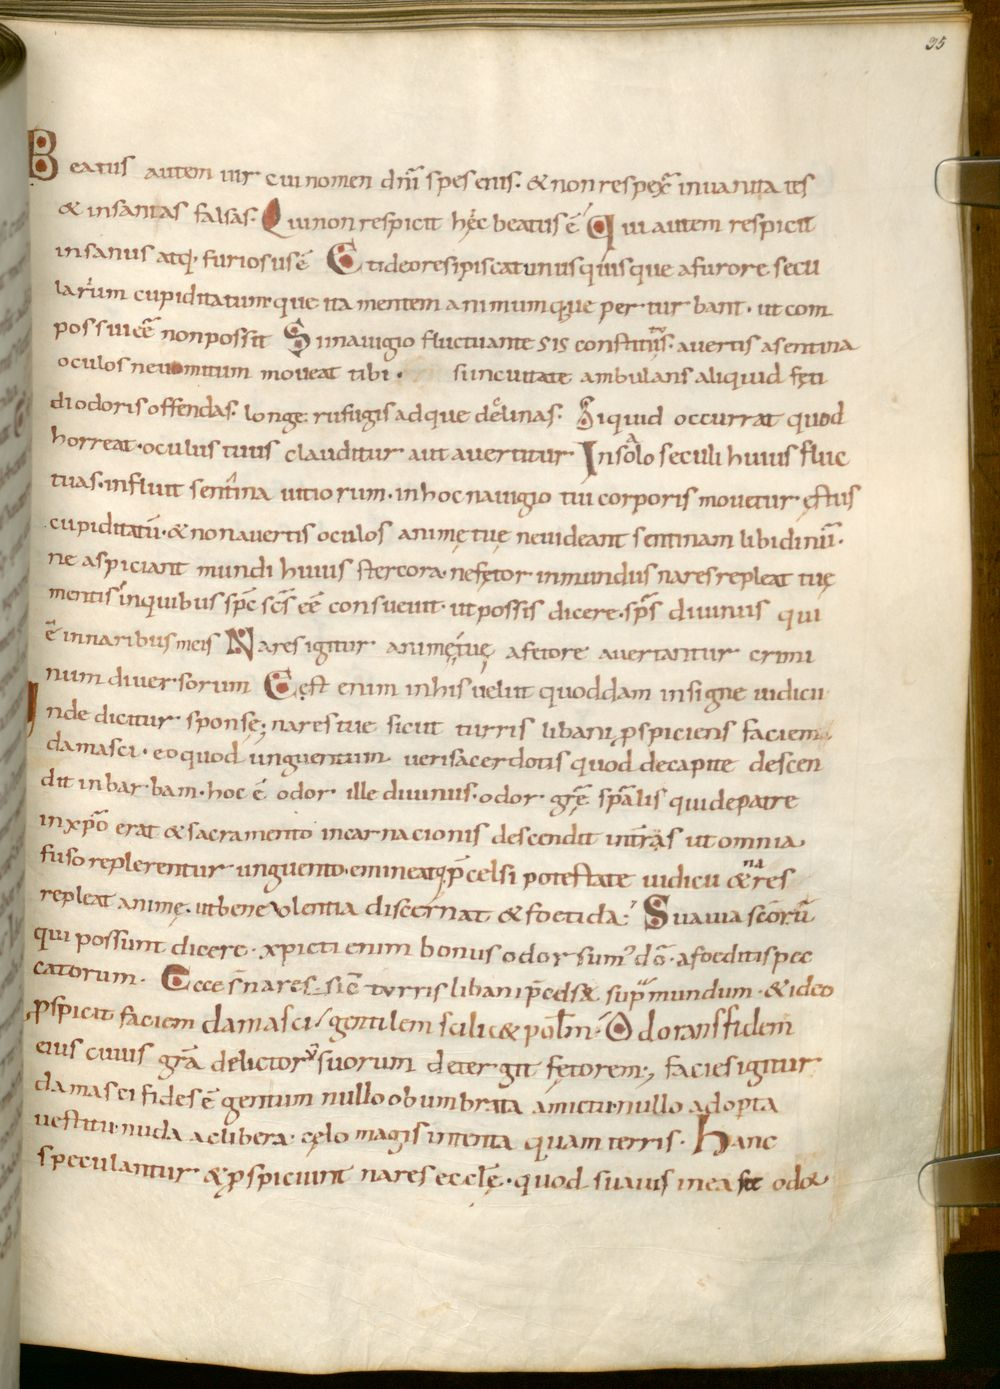 35
Beatus autem uir cui nomen dñi spes eius. & non respex̄ in uanitates
& insanias falsas. Qui non respicit hęc beatus ē Qui autem respicit
insanus atq; furiosus ē Et ideo resipiscat unusquisque a furore secu
larium cupiditatum que ita mentem animumque perturbant. ut com
pos sui eē non possit Si nauigio fluctuante sis auertis a sentina
oculos ne uomitum moueat tibi. si in ciuitate ambulans aliquid fęti
di odoris offendas. longe refugis adque declinas. Si quid occurrat quod
horreat. oculus tuus clauditur aut auertitur In salo seculi huius fluc
tuas. influit sentina uitiorum. in hoc nauigio tui corporis mouetur. ęstus
cupiditatū. & non auertis oculos animę tuę ne uideant sentinam libidinū.
ne aspiciant mundi huius stercora. ne fętor inmundus nares repleat tuę
mentis in quibus spc̄ scs̄ eē consueuit. ut possis dicere. sps̄ diuinus qui
ē in naribus meis Nares igitur animę tuę a fetore auertantur crimi
num diuersorum Est enim in his uelut quoddam insigne iudicii
Inde dicitur sponsę; nares tue sicut turris libani ꝓspiciens faciem
damasci. eo quod unguentum ueri sacerdotis quod de capite descen
dit in barbam. hoc ē odor ille diuinus. odor grę̄ spālis qui de patre
in xp̄o erat & sacramento incarnacionis descendit in terras ut omnia
fuso replerentur unguento. emineatq; p̄celsi potestate iudicii & nares
repleat animę. ut beneuolentia discernat & foetida; Suauia sc̄orū
qui possunt dicere. xpicti enim bonus odor sum' dō. a foeditis pec
catorum. Ecce nares sic̄ turris libani p̄celsę supra mundum. & ideo
ꝓspicit faciem damasci gentilem scilic& Odorans fidem
eius cuius grā delictorū suorum detergit fętorem; facies igitur
damasci fides ē gentium nullo obumbrata amictu. nullo adopta
uestitu. nuda ac libera. cęlo magis intenta quam terris. Hanc
speculantur & ꝓspiciunt nares ecclę̄. quod suauis in ea sit odor